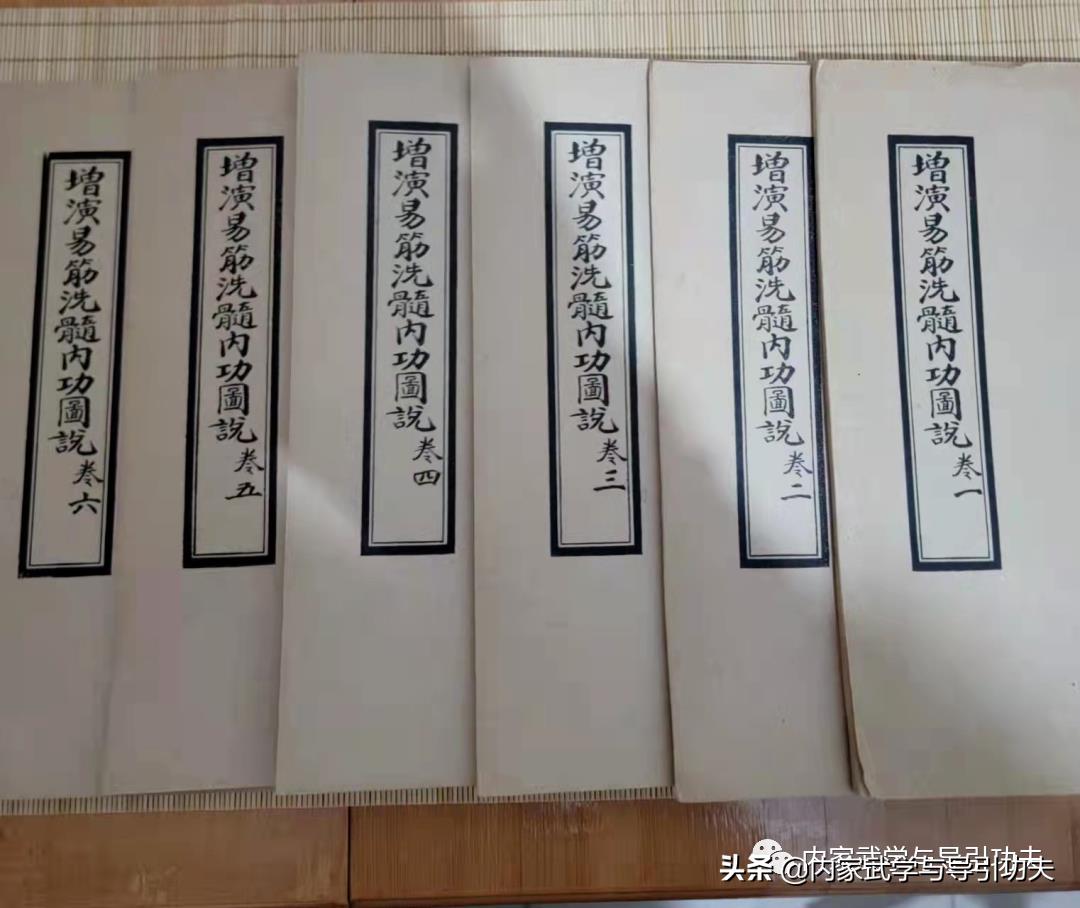 增演易筋洗髓內功圖說 卷一
增演易筋洗髓內功圖說 卷二
增演易筋洗髓內功圖說 卷三
增演易筋洗髓內功圖說 卷四
增演易筋洗髓內功圖說 卷五
增演易筋洗髓內功圖說 卷六
内家武学与导引功夫
头条@内家武学与导引功夫